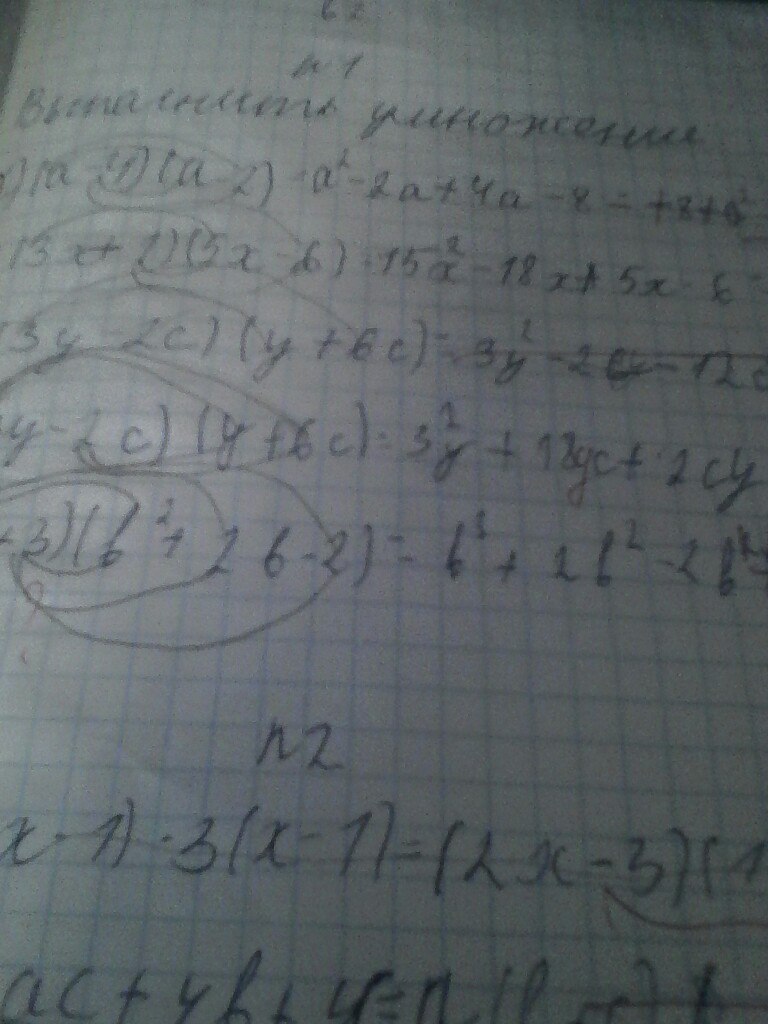 n 1
Выполнить умножение
4)(a-2) a²-2a+4a-8=
(3x+1)(5x-6) 15x²-18x+5x-6
3y-2c)(y+6c)=3y²
y-2c)(y+6c)=3y²+18yc+2cy
3)(b²+2b-2)=b³+2b²-2b
n 2
x-1)-3(x-1)=(2x-3)(
ac+4b+4c=